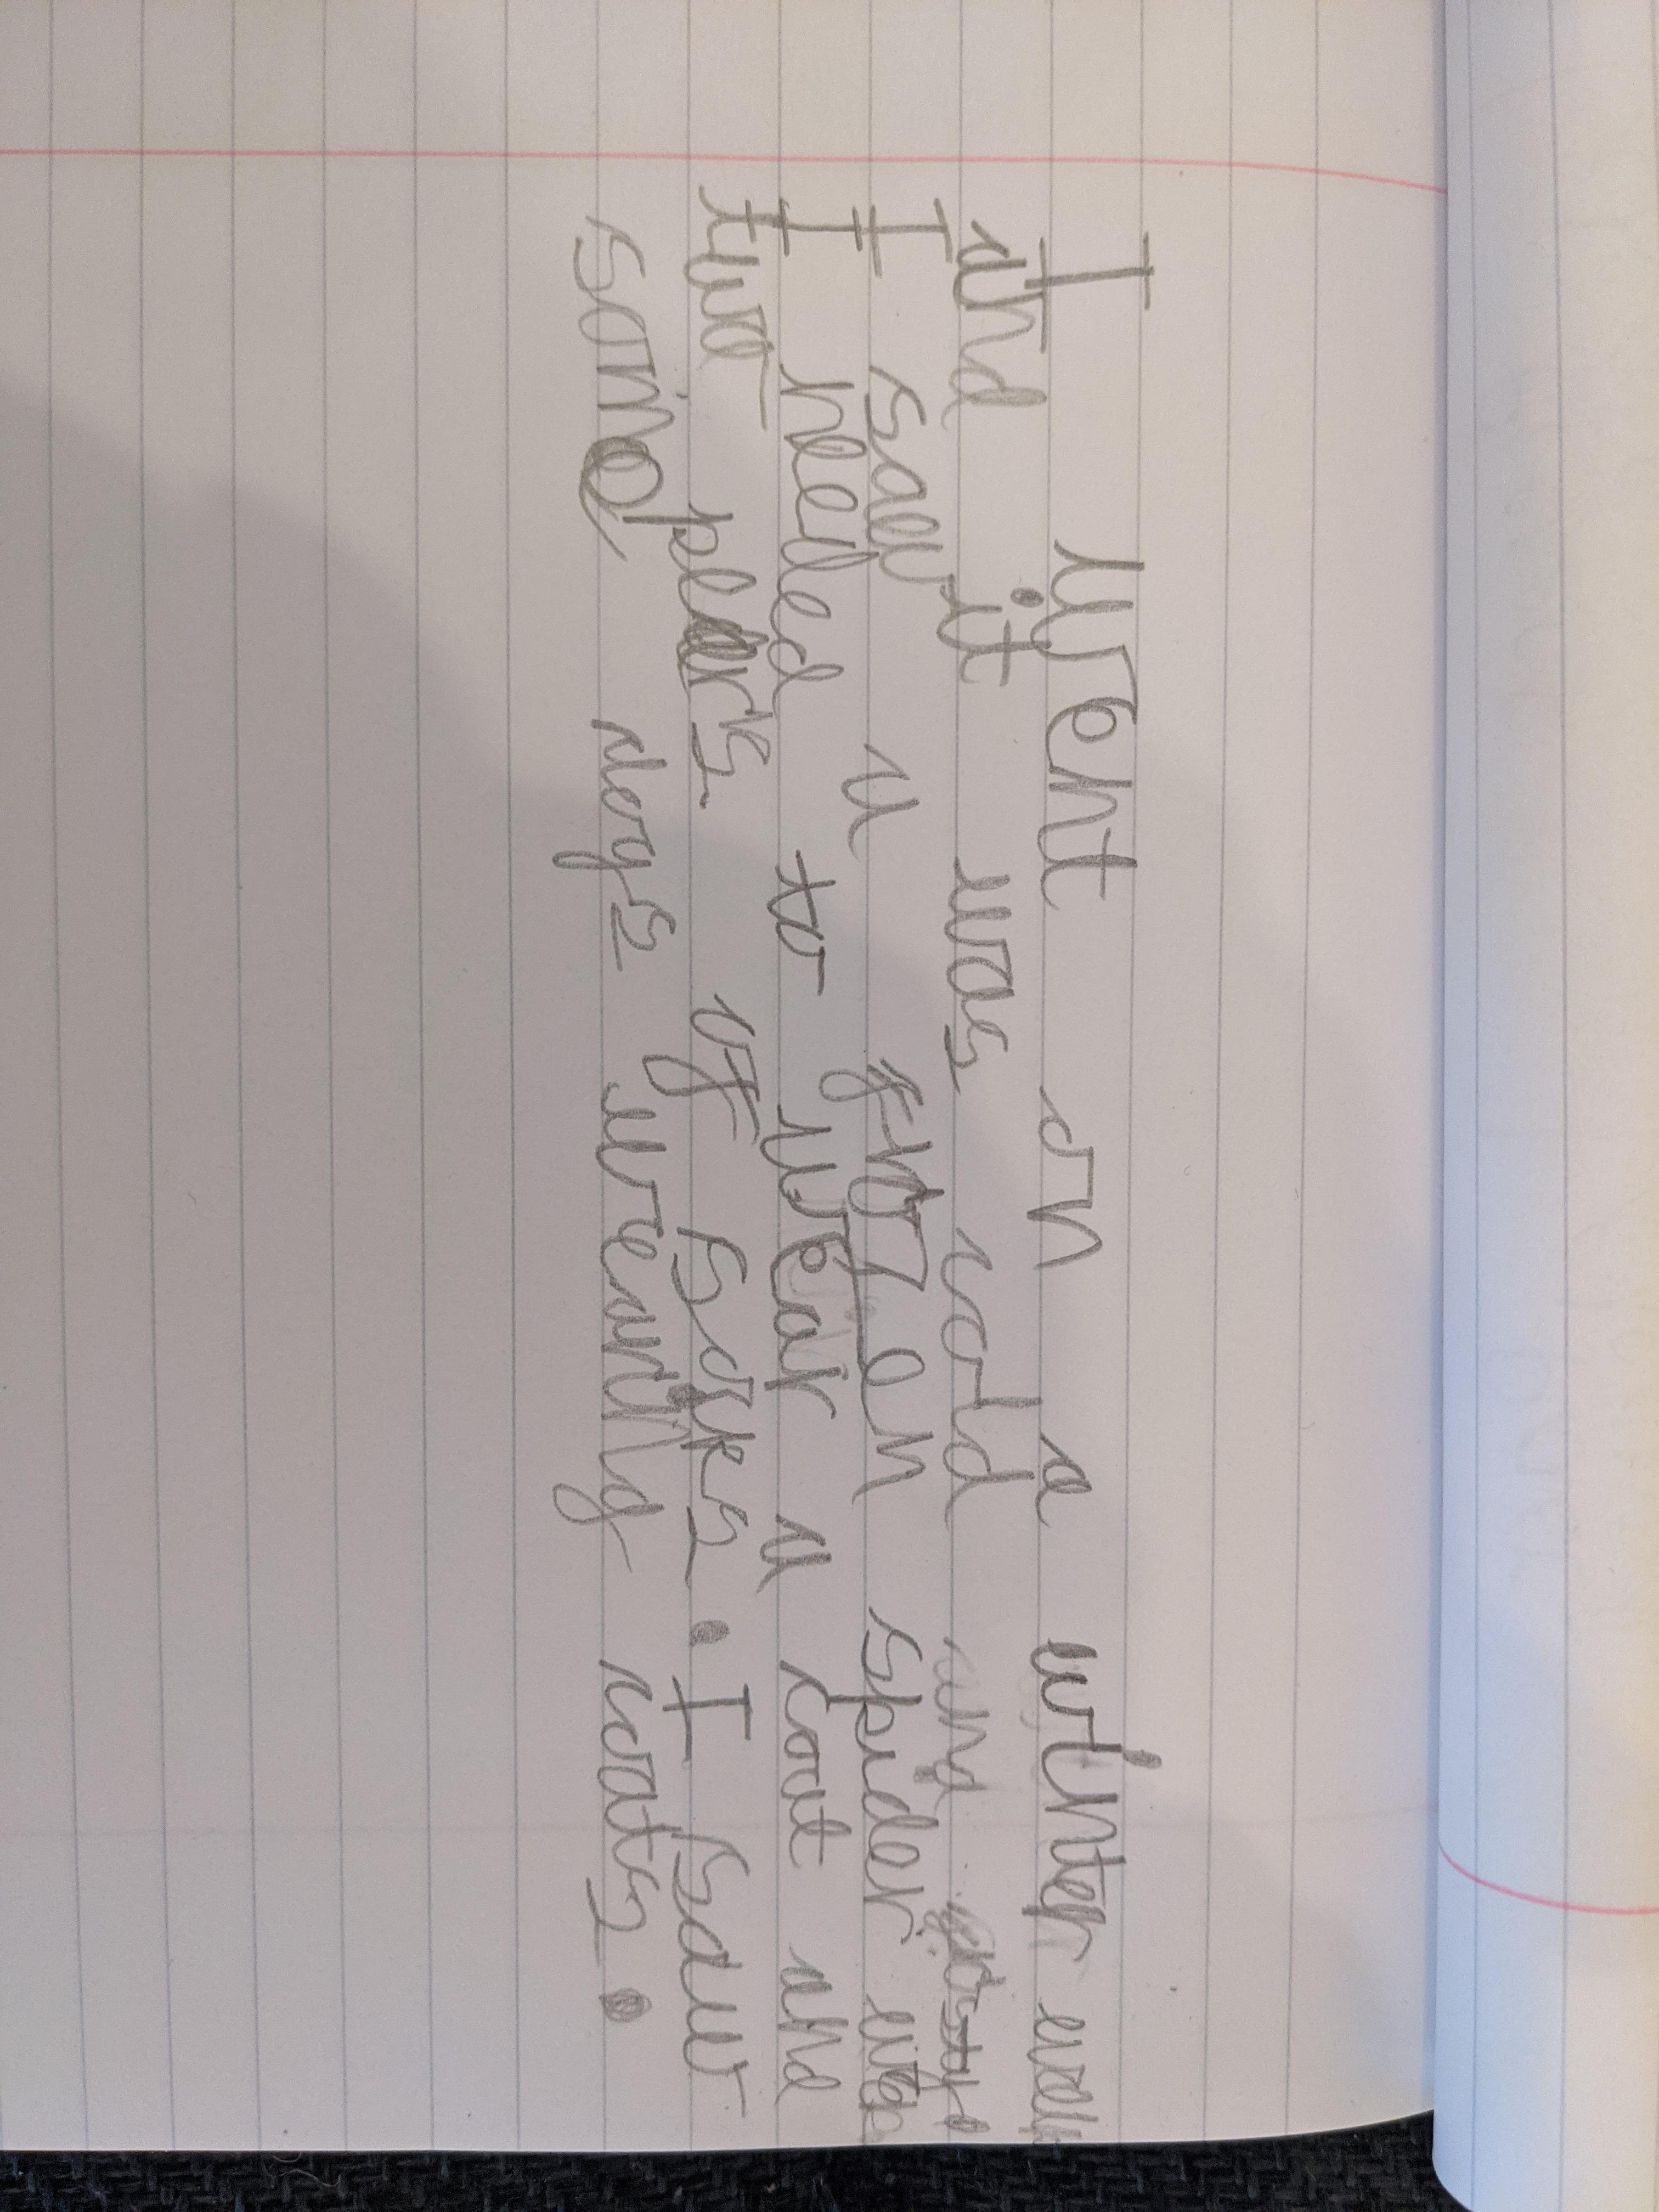 I went on a winter walk
and it was cold and
I saw a frozen spider web
I needed to wear a coat and
two peers of socks. I saw
some dogs wearing coats.